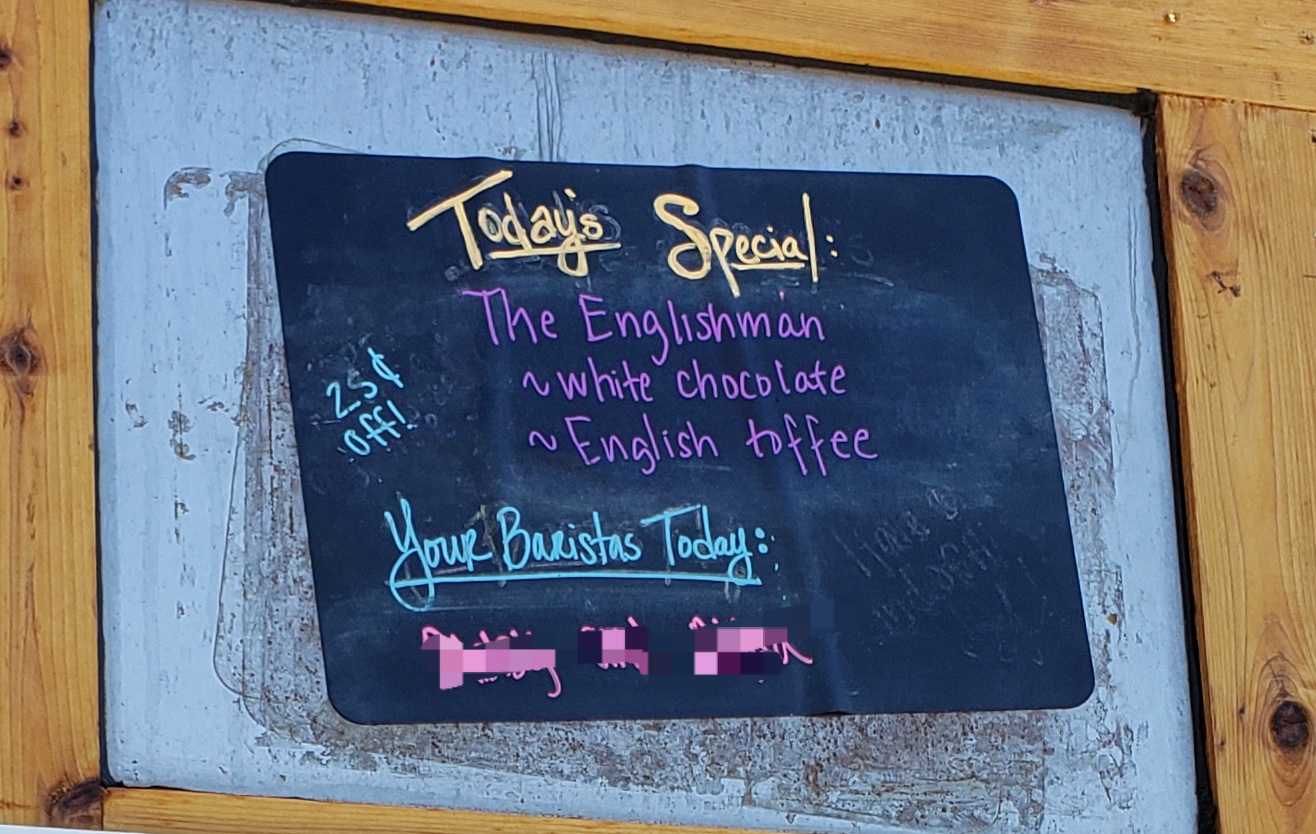 Today's Special:
The Englishman
~ white chocolate
~ English toffee
25¢
off!
Your Baristas Today: